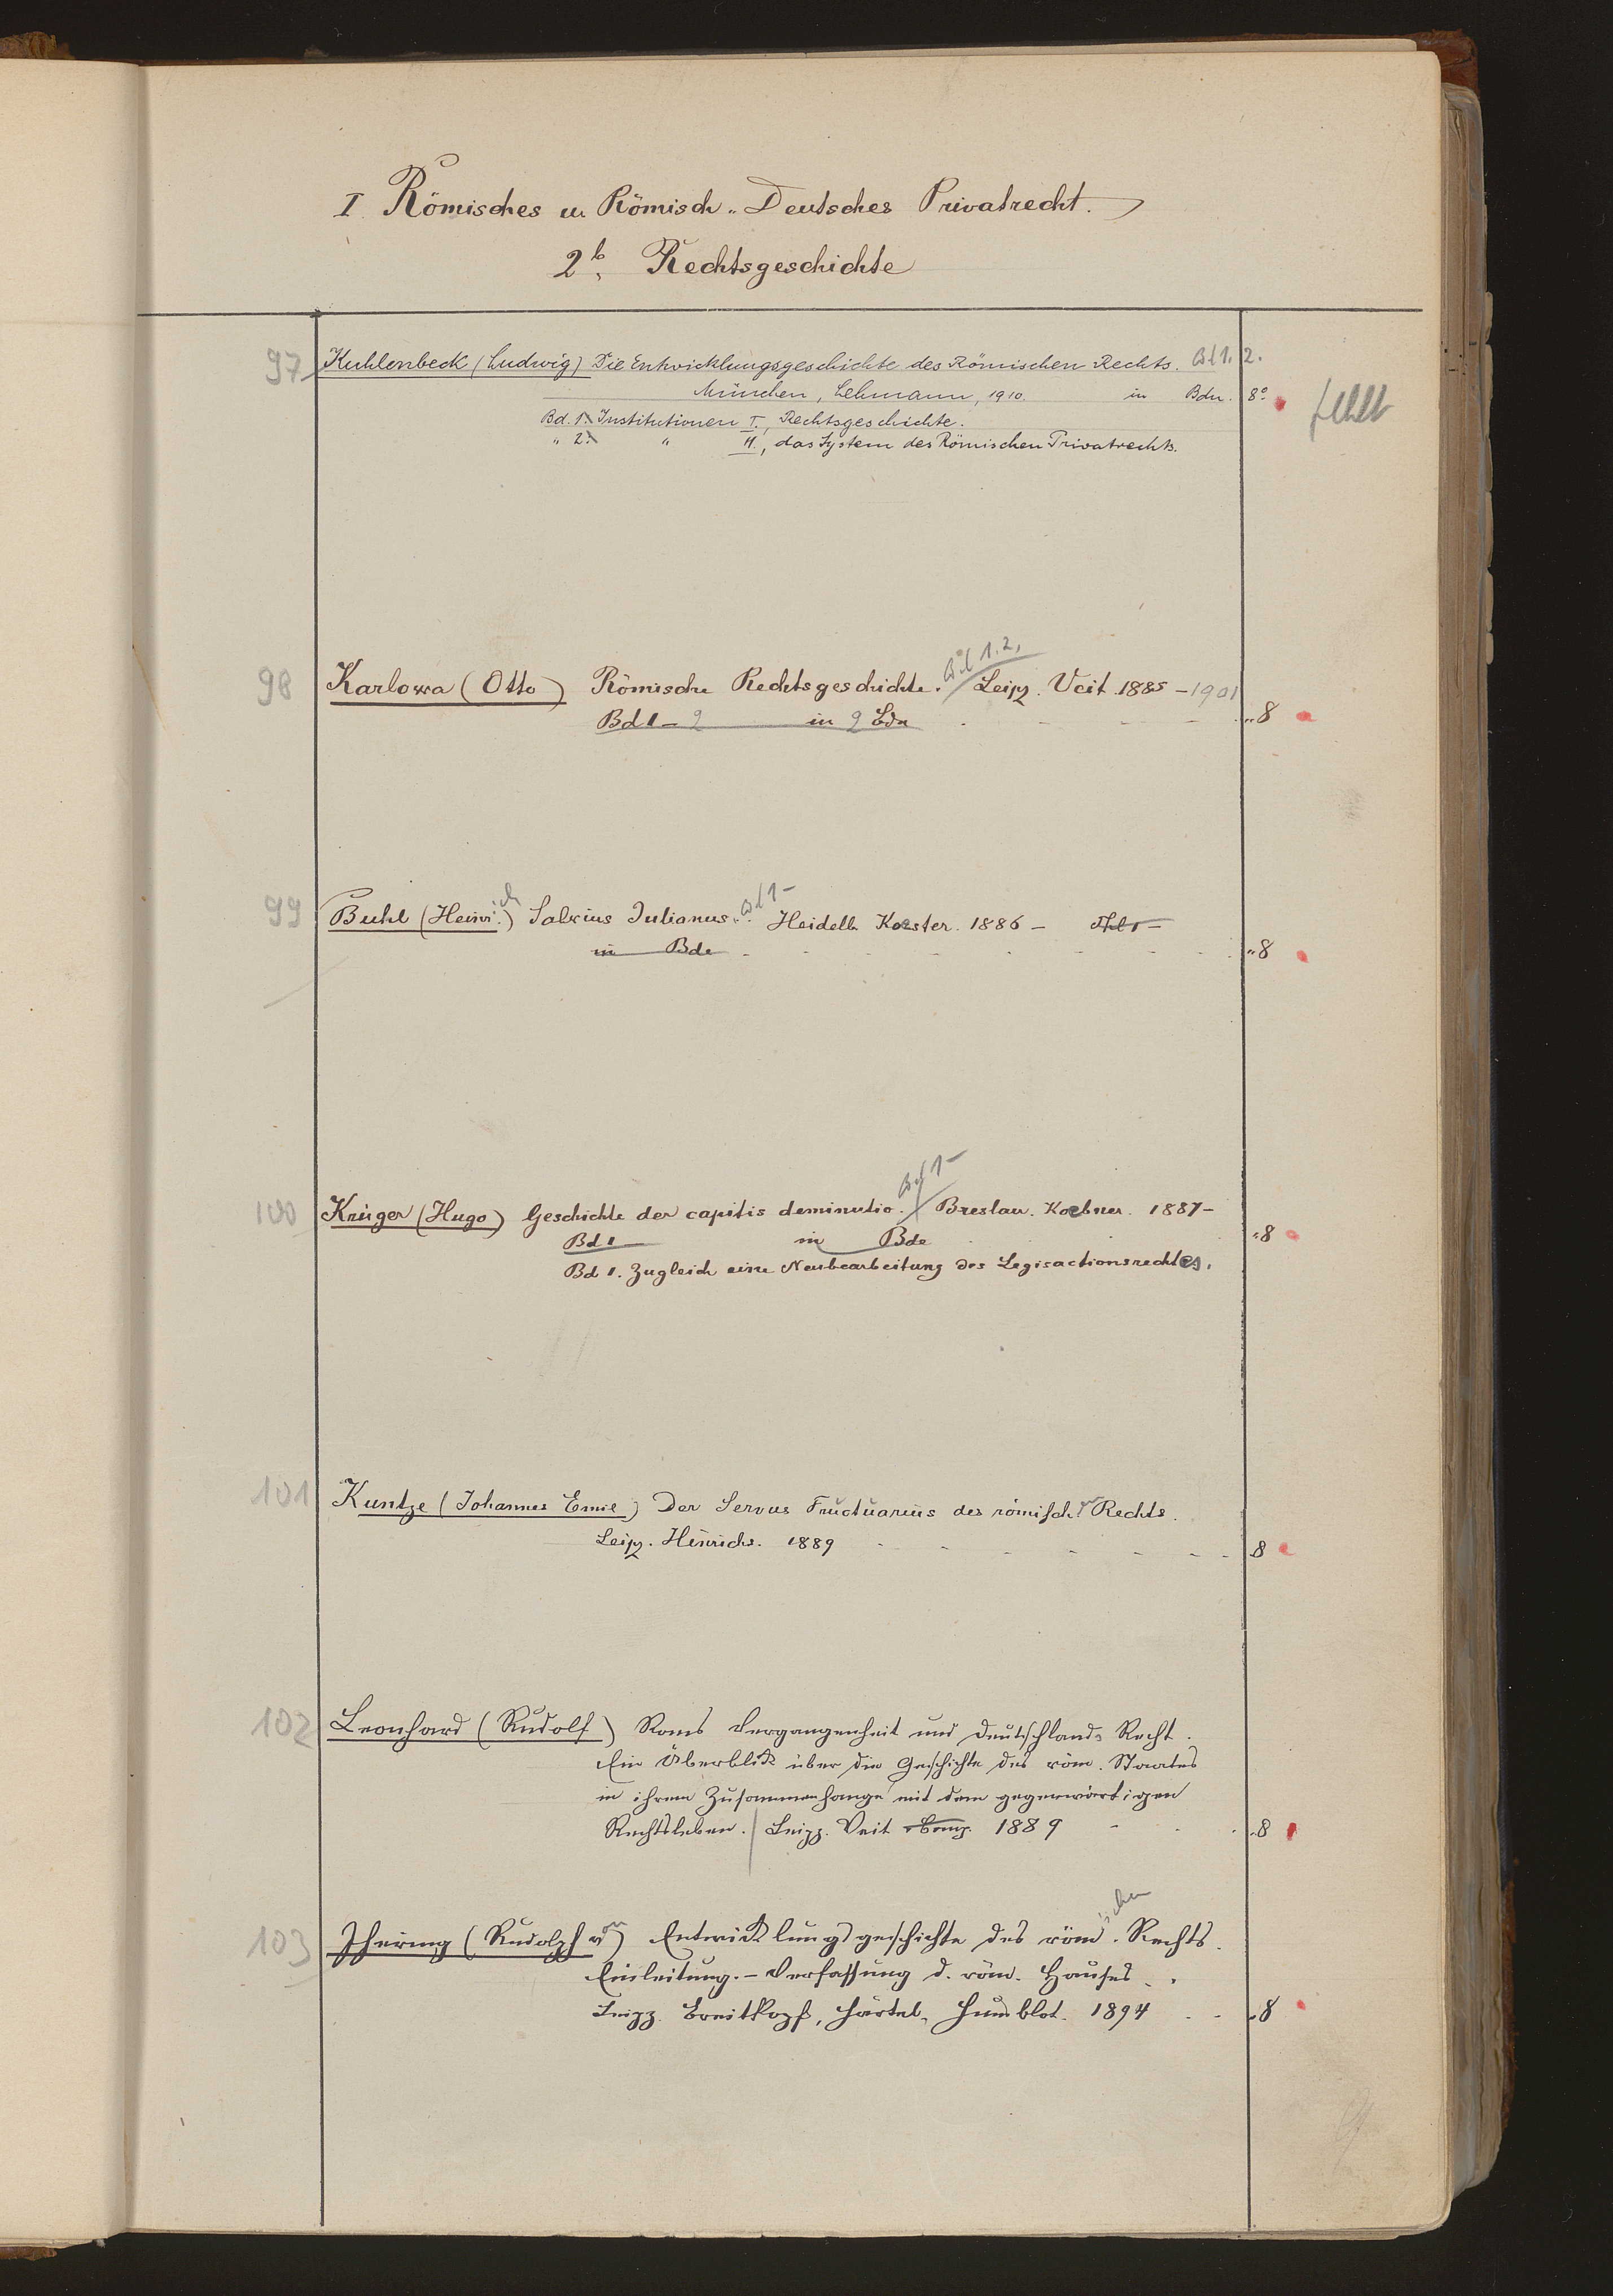 I. Römisches u Römisch-Deutsches Privatrecht.
2b, Rechtsgeschichte
97 Kuhlenbeck (Ludwig) Die Entwicklungsgeschichte des Römischen Rechts. Bd 1. 2.
München, Lehmann, 1910. in Bdn. 8° fehlt
Bd. 1. Institutionen I., Rechtsgeschichte.
" 2. " II., das System des Römischen Privatrechts.
98 Karlowa (Otto) Römische Rechtsgeschichte. Bd 1. 2. Leipz. Veit 1885 - 1901
Bd 1 - 2 in 2 Bdn - - - - "8
99 Buhl (Heinrich) Salvius Julianus. Bd 1- Heidelb. Koester. 1886 - Thl 1 -
in Bde - - - - - - - "8
100 Krüger (Hugo) Geschichte der capitis deminutio. Bd 1- Breslau. Koebner. 1887-
Bd 1 in Bde "8
Bd 1. Zugleich eine Neubearbeitung des Legisactionsrechtes.
101 Kuntze (Johannes Emil) Der Servus Fructuarius des römisch. Rechts.
Leipz. Hinrichs. 1889 - - - - - - - 8
102 Leonhard (Rudolf) Roms Vergangenheit und Deutschlands Recht.
Ein Überblick über die Geschichte des röm. Staates
in ihrem Zusammenhange mit dem gegenwärtigen
Rechtsleben. Leipz. Veit & Comp. 1889 - - - "8
103 Jhering (Rudolph von) Entwicklungsgeschichte des römischen Rechts.
Einleitung. - Verfassung d. röm. Hauses.
Leipz. Breitkopf, Härtel, Humblot. 1894 - - "8